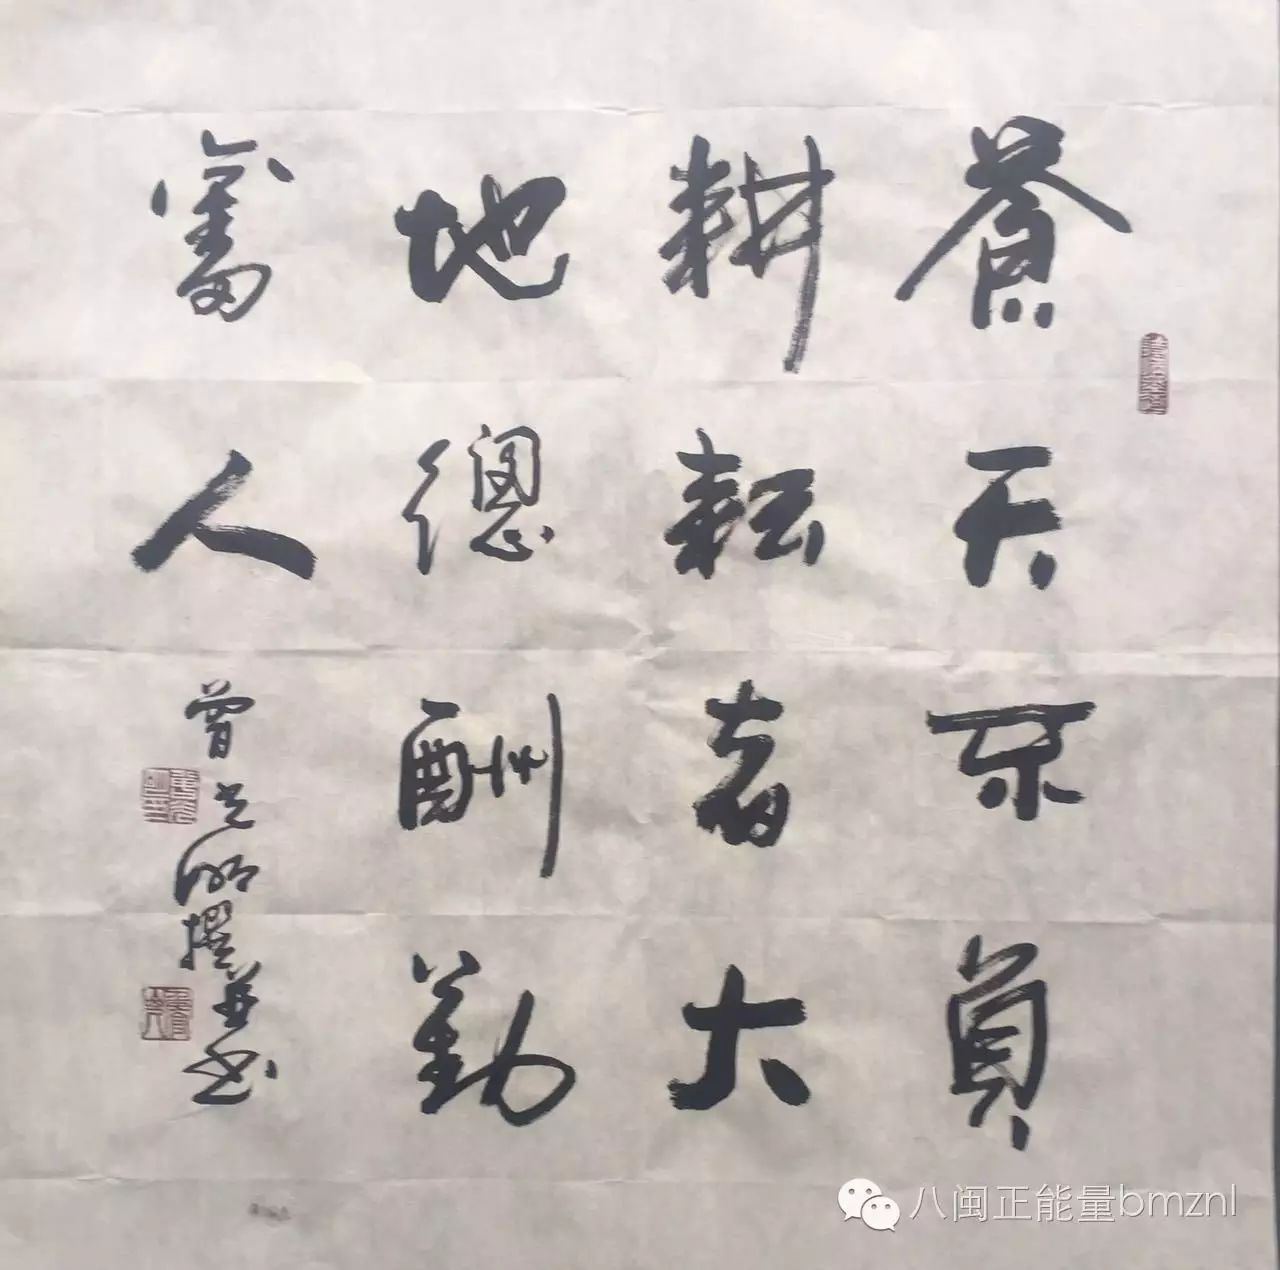 蒼天不負
耕耘者大
地總酬勤
奮人
曾明撰並書
八闽正能量bmznl